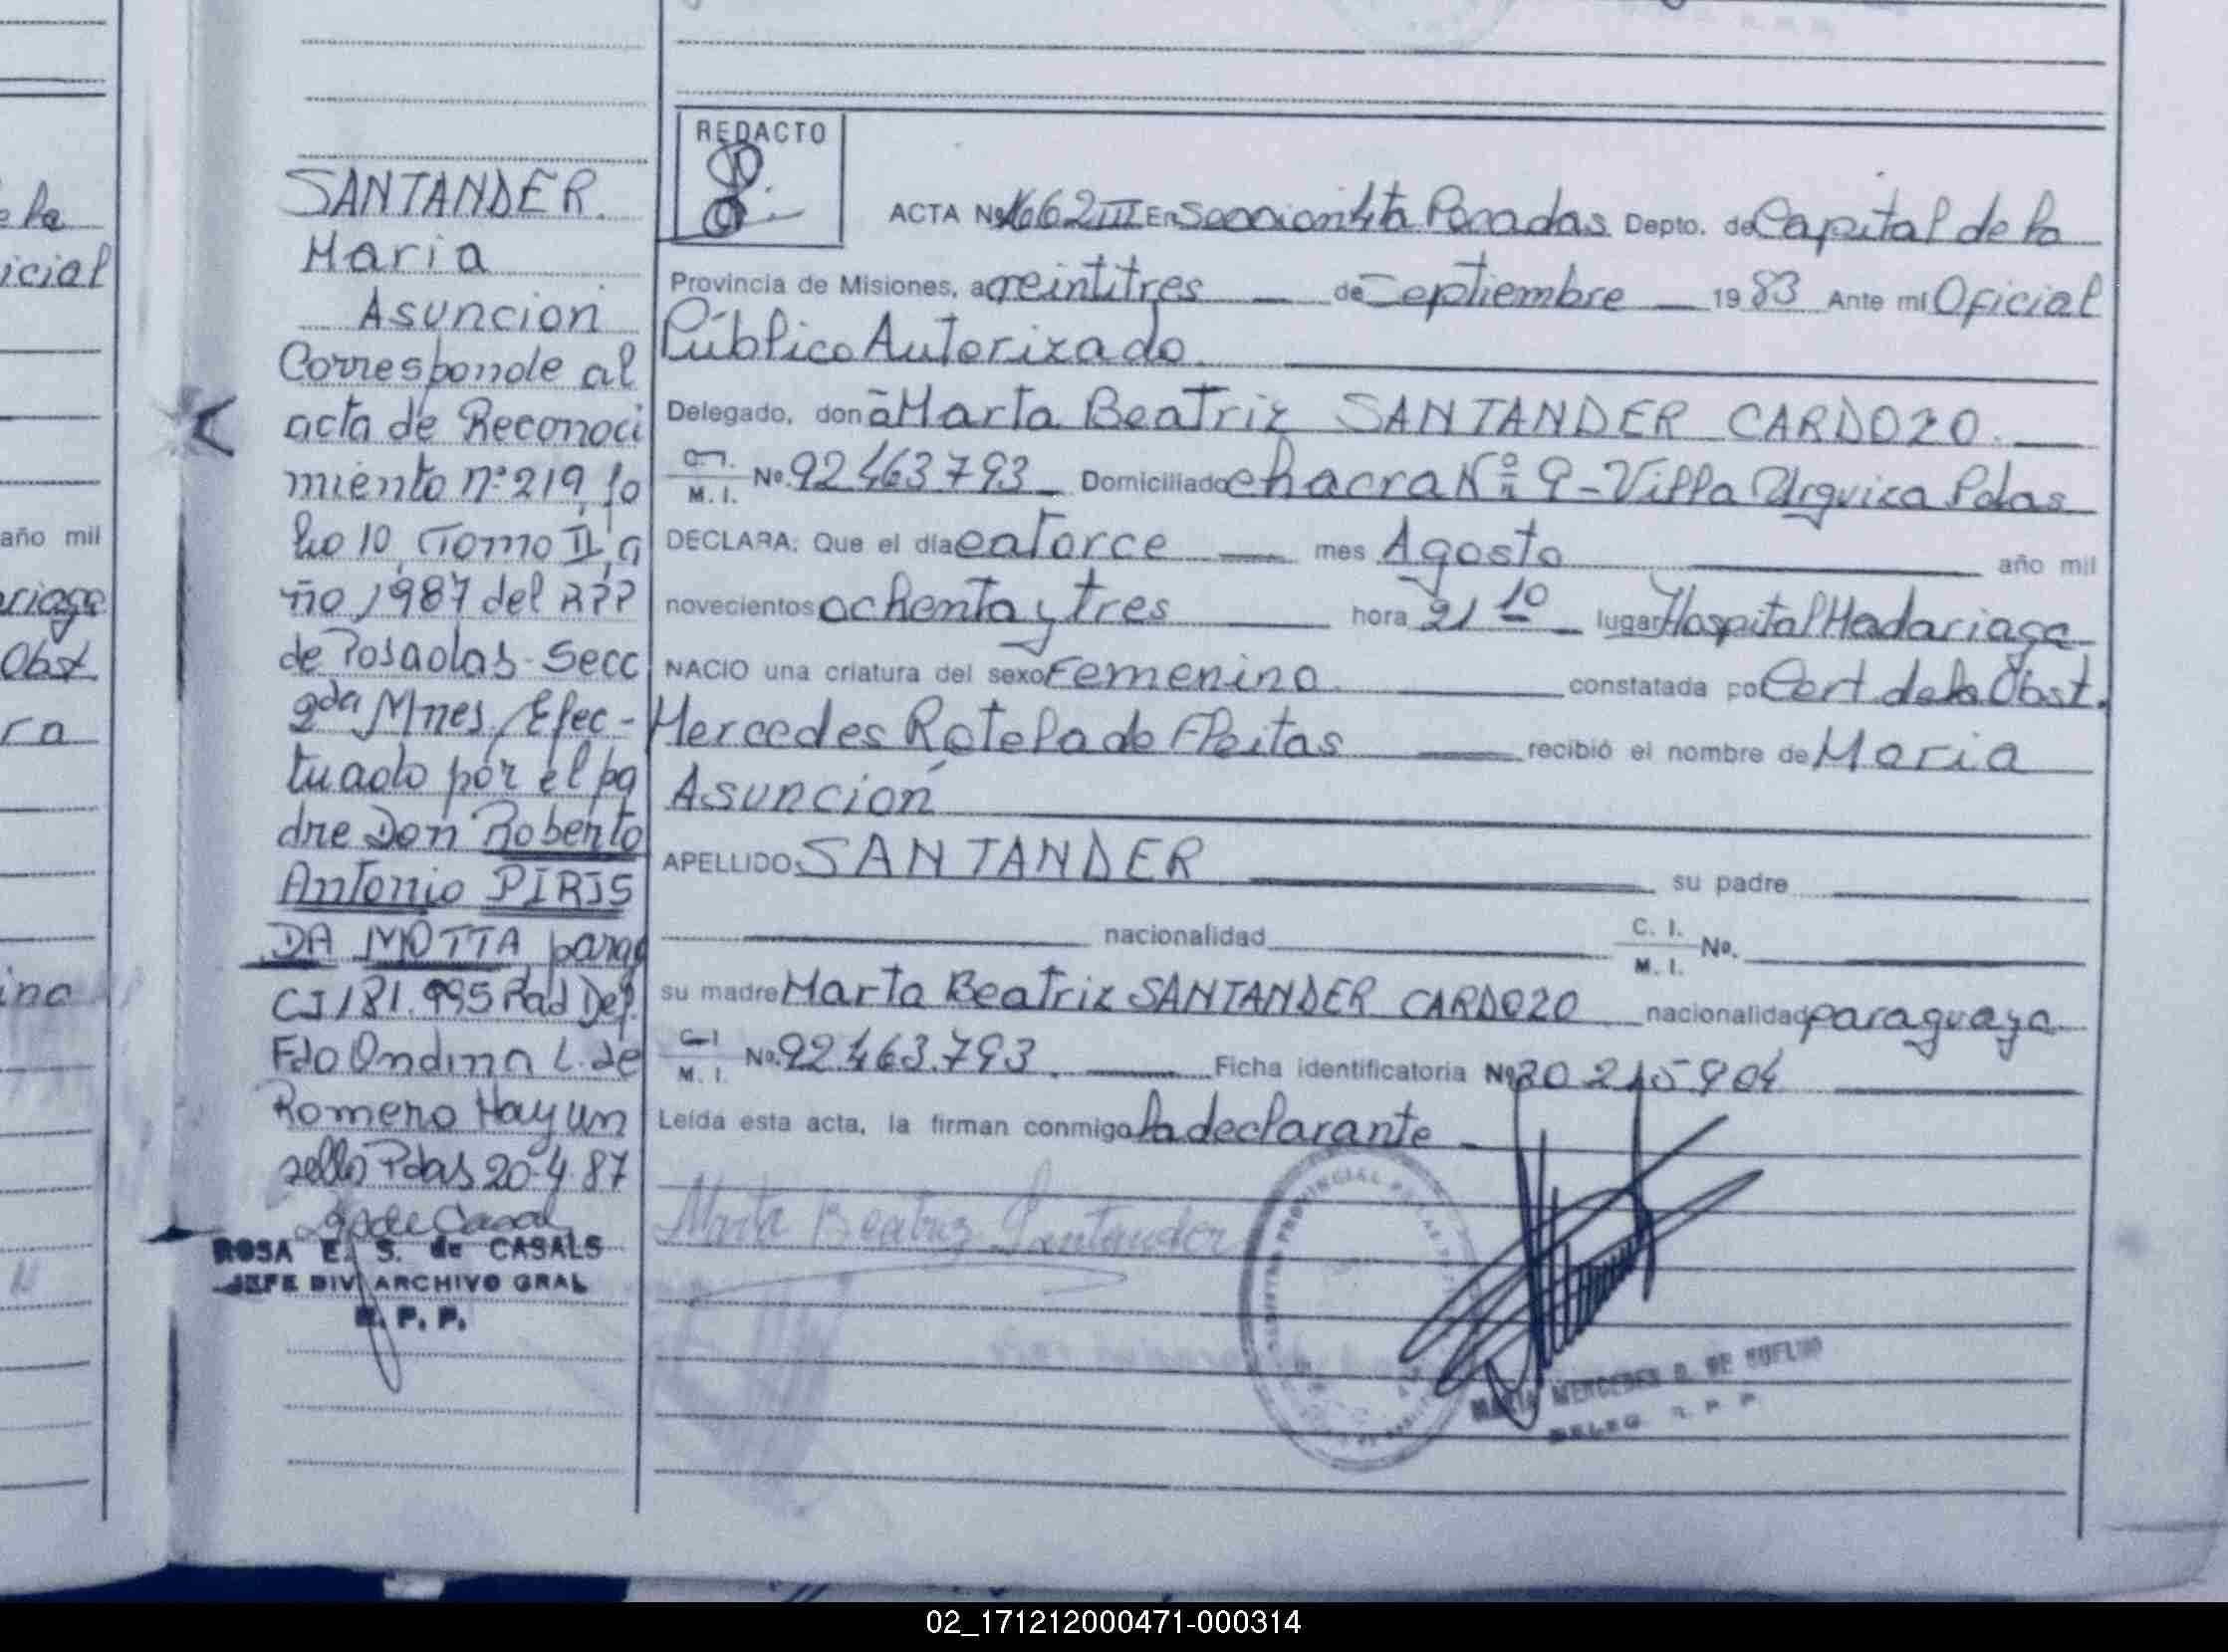 e la
icial
año mil
riaga
Obst.
ra
ina
SANTANDER.
Maria
Asuncion
Corresponde al
acta de Reconoci
miento nº 219, fo
lio 10, Tomo II, a
ño 1987 del RPP
de Posadas - Secc
2da Mnes. Efec-
tuado por el pa
dre Don Roberto
Antonio PIRIS
DA MOTTA parag
CI 181.995 Pad Dep.
Fdo Ondina L. de
Romero Hay un
sello Pdas 20-4-87
ROSA E. S. de CASALS
JEFE DIV. ARCHIVO GRAL
R. P. P.
REDACTO
ACTA Nº 1662 III En Seccion 4ta Posadas Depto. de Capital de la
Provincia de Misiones, a veintitres de Septiembre 1983 Ante mi Oficial
Público Autorizado
Delegado, doña Marta Beatriz SANTANDER CARDOZO.
C.I. M. I. Nº. 92.463.793 Domiciliado chacra Nº 9 - Villa Urquiza Pdas
DECLARA: Que el día catorce mes Agosto año mil
novecientos ochenta y tres hora 21 10 lugar Hospital Madariaga
NACIO una criatura del sexo Femenino. constatada po Cert. de la Obst.
Mercedes Rotela de Fleitas recibió el nombre de Maria
Asunción
APELLIDO SANTANDER su padre
nacionalidad C. I. M. I. Nº.
su madre Marta Beatriz SANTANDER CARDOZO nacionalidad paraguaya
C.I. M. I. Nº. 92.463.793. Ficha identificatoria Nº 30.215.904
Leída esta acta, la firman conmigo la declarante
Marta Beatriz Santander
MARIA MERCEDES D. DE
DELEG. R. P. P.
02_171212000471-000314